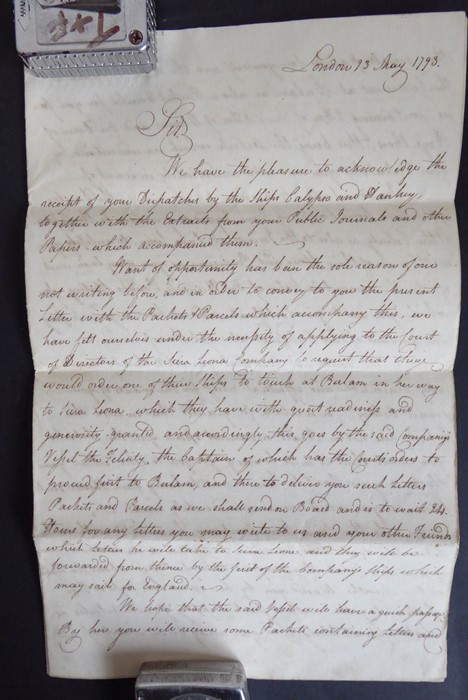 London 23 May 1793.
Sir
We have the pleasure to acknowledge the
receipt of your Dispatches by the Ships Calypso and Hankey,
together with the Extracts from your Public Journals and other
Papers which accompanied them.
Want of opportunity has been the sole reason of our
not writing before, and in order to convey to you the present
Letter with the Packets & Parcels which accompany this, we
have felt ourselves under the necessity of applying to the Court
of Directors of the Siera Leona Company to request that they
would order one of their Ships to touch at Bulam in her way
to Siera Leona, which they have with great readiness and
generosity granted, and accordingly this goes by the said Company's
Vessel the Felicity, the Captain of which has the Courts orders to
proceed first to Bulam, and there to deliver you such Letters
Packets and Parcels as we shall send on Board and is to wait 24
Hours for any Letters you may write to us and your other Friends
which letters he will take to Siera Leona and they will be
forwarded from thence by the first of the Company's Ships which
may sail for England.
We hope that the said Vessel will have a quick passage
By her you will receive some Packets containing Letters and